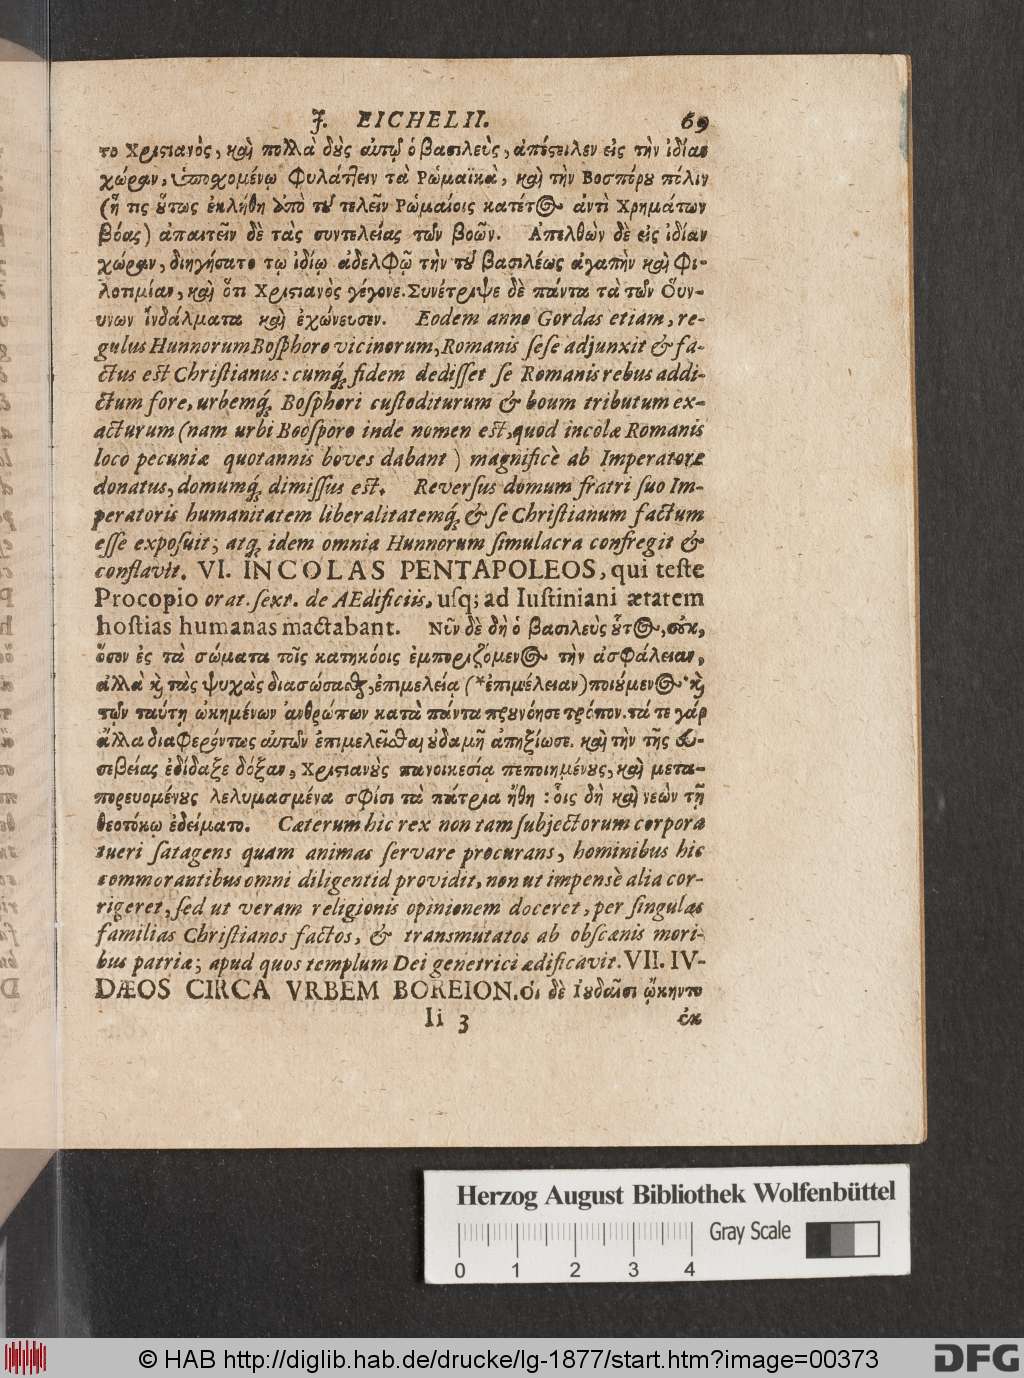 J. EICHELII. 69
το Χριστιανὸς, καὶ πολλὰ δὺς αὐτῷ ὁ βασιλεὺς, ἀπέστειλεν εἰς τὴν ἰδίαν
χώραν, ὑποσχομένῳ Φυλάττειν τὰ Ρωμαϊκὰ, καὶ τὴν Βοσπόρου πόλιν
(ἥ τις οὕτως ἐκλήθη ἀπὸ τοῦ τελεῖν Ρωμαίοις κατέτος ἀντὶ Χρημάτων
βόας) ἀπαιτεῖν δὲ τὰς συντελείας τῶν βοῶν. Ἀπελθὼν δὲ εἰς ἰδίαν
χώραν, διηγήσατο τῳ ἰδίῳ ἀδελΦῷ τὴν τοῦ βασιλέως ἀγαπὴν καὶ Φι-
λοτιμίαν, καὶ ὅτι Χριστιανὸς γέγονε. Συνέτριψε δὲ πάντα τὰ τῶν Οὕν-
υνων ἰνδάλματα καὶ ἐχώνευσεν. Eodem anno Gordas etiam, re-
gulus Hunnorum Boſphoro vicinorum, Romanis ſeſe adjunxit & fa-
ctus eſt Chriſtianus: cumq́; fidem dediſſet ſe Romanis rebus addi-
ctum fore, urbemq́; Boſphori cuſtoditurum & boum tributum ex-
acturum (nam urbi Booſporo inde nomen eſt, quod incolæ Romanis
loco pecuniæ quotannis boves dabant) magnificè ab Imperatore
donatus, domumq́; dimiſſus eſt. Reverſus domum fratri ſuo Im-
peratoris humanitatem liberalitatemq́; & ſe Chriſtianum factum
eſſe expoſuit; atq; idem omnia Hunnorum ſimulacra confregit &
conflavit. VI. INCOLAS PENTAPOLEOS, qui teſte
Procopio orat. ſext. de AEdificiis, uſq; ad Iuſtiniani ætatem
hoſtias humanas mactabant. Νῦν δὲ δὴ ὁ βασιλεὺς οὗτος, οὐκ,
ὅσον ἐς τὰ σώματα τοῖς κατηκόοις ἐμποριζόμενος τὴν ἀσφάλειαν,
ἀλλὰ καὶ τὰς ψυχὰς διασώσασθαι, ἐπιμελείᾳ (*ἐπιμέλειαν) ποιούμενος καὶ
τῶν ταύτῃ ᾠκημένων ἀνθρώπων κατὰ πάντα προυνόησε τρόπον. τά τε γάρ
ἄλλα διαΦερόντως αὐτῶν ἐπιμελεῖσθαι οὐδαμῆ ἀπηξίωσε. καὶ τὴν τῆς εὐ-
σεβείας ἐδίδαξε δόξαν, Χριστιανοὺς πανοικεσίᾳ πεποιημένους, καὶ μετα-
πορευομένους λελυμασμένα σΦίσι τὰ πάτρια ἤθη: οἷς δὴ καὶ νεὼν τῇ
θεοτόκῳ ἐδείματο. Cæterum hic rex non tam ſubjectorum corpora
tueri ſatagens quam animas ſervare procurans, hominibus hic
commorantibus omni diligentid providit, non ut impensè alia cor-
rigeret, ſed ut veram religionis opinionem doceret, per ſingulas
familias Chriſtianos factos, & transmutatos ab obſcænis mori-
bus patriæ; apud quos templum Dei genetrici ædificavit. VII. IV-
DÆOS CIRCA VRBEM BOREION. Οἱ δὲ Ιουδαῖοι ᾤκηντο
Ii 3 ἐκ
Herzog August Bibliothek Wolfenbüttel
Gray Scale
0 1 2 3 4
© HAB http://diglib.hab.de/drucke/lg-1877/start.htm?image=00373 DFG